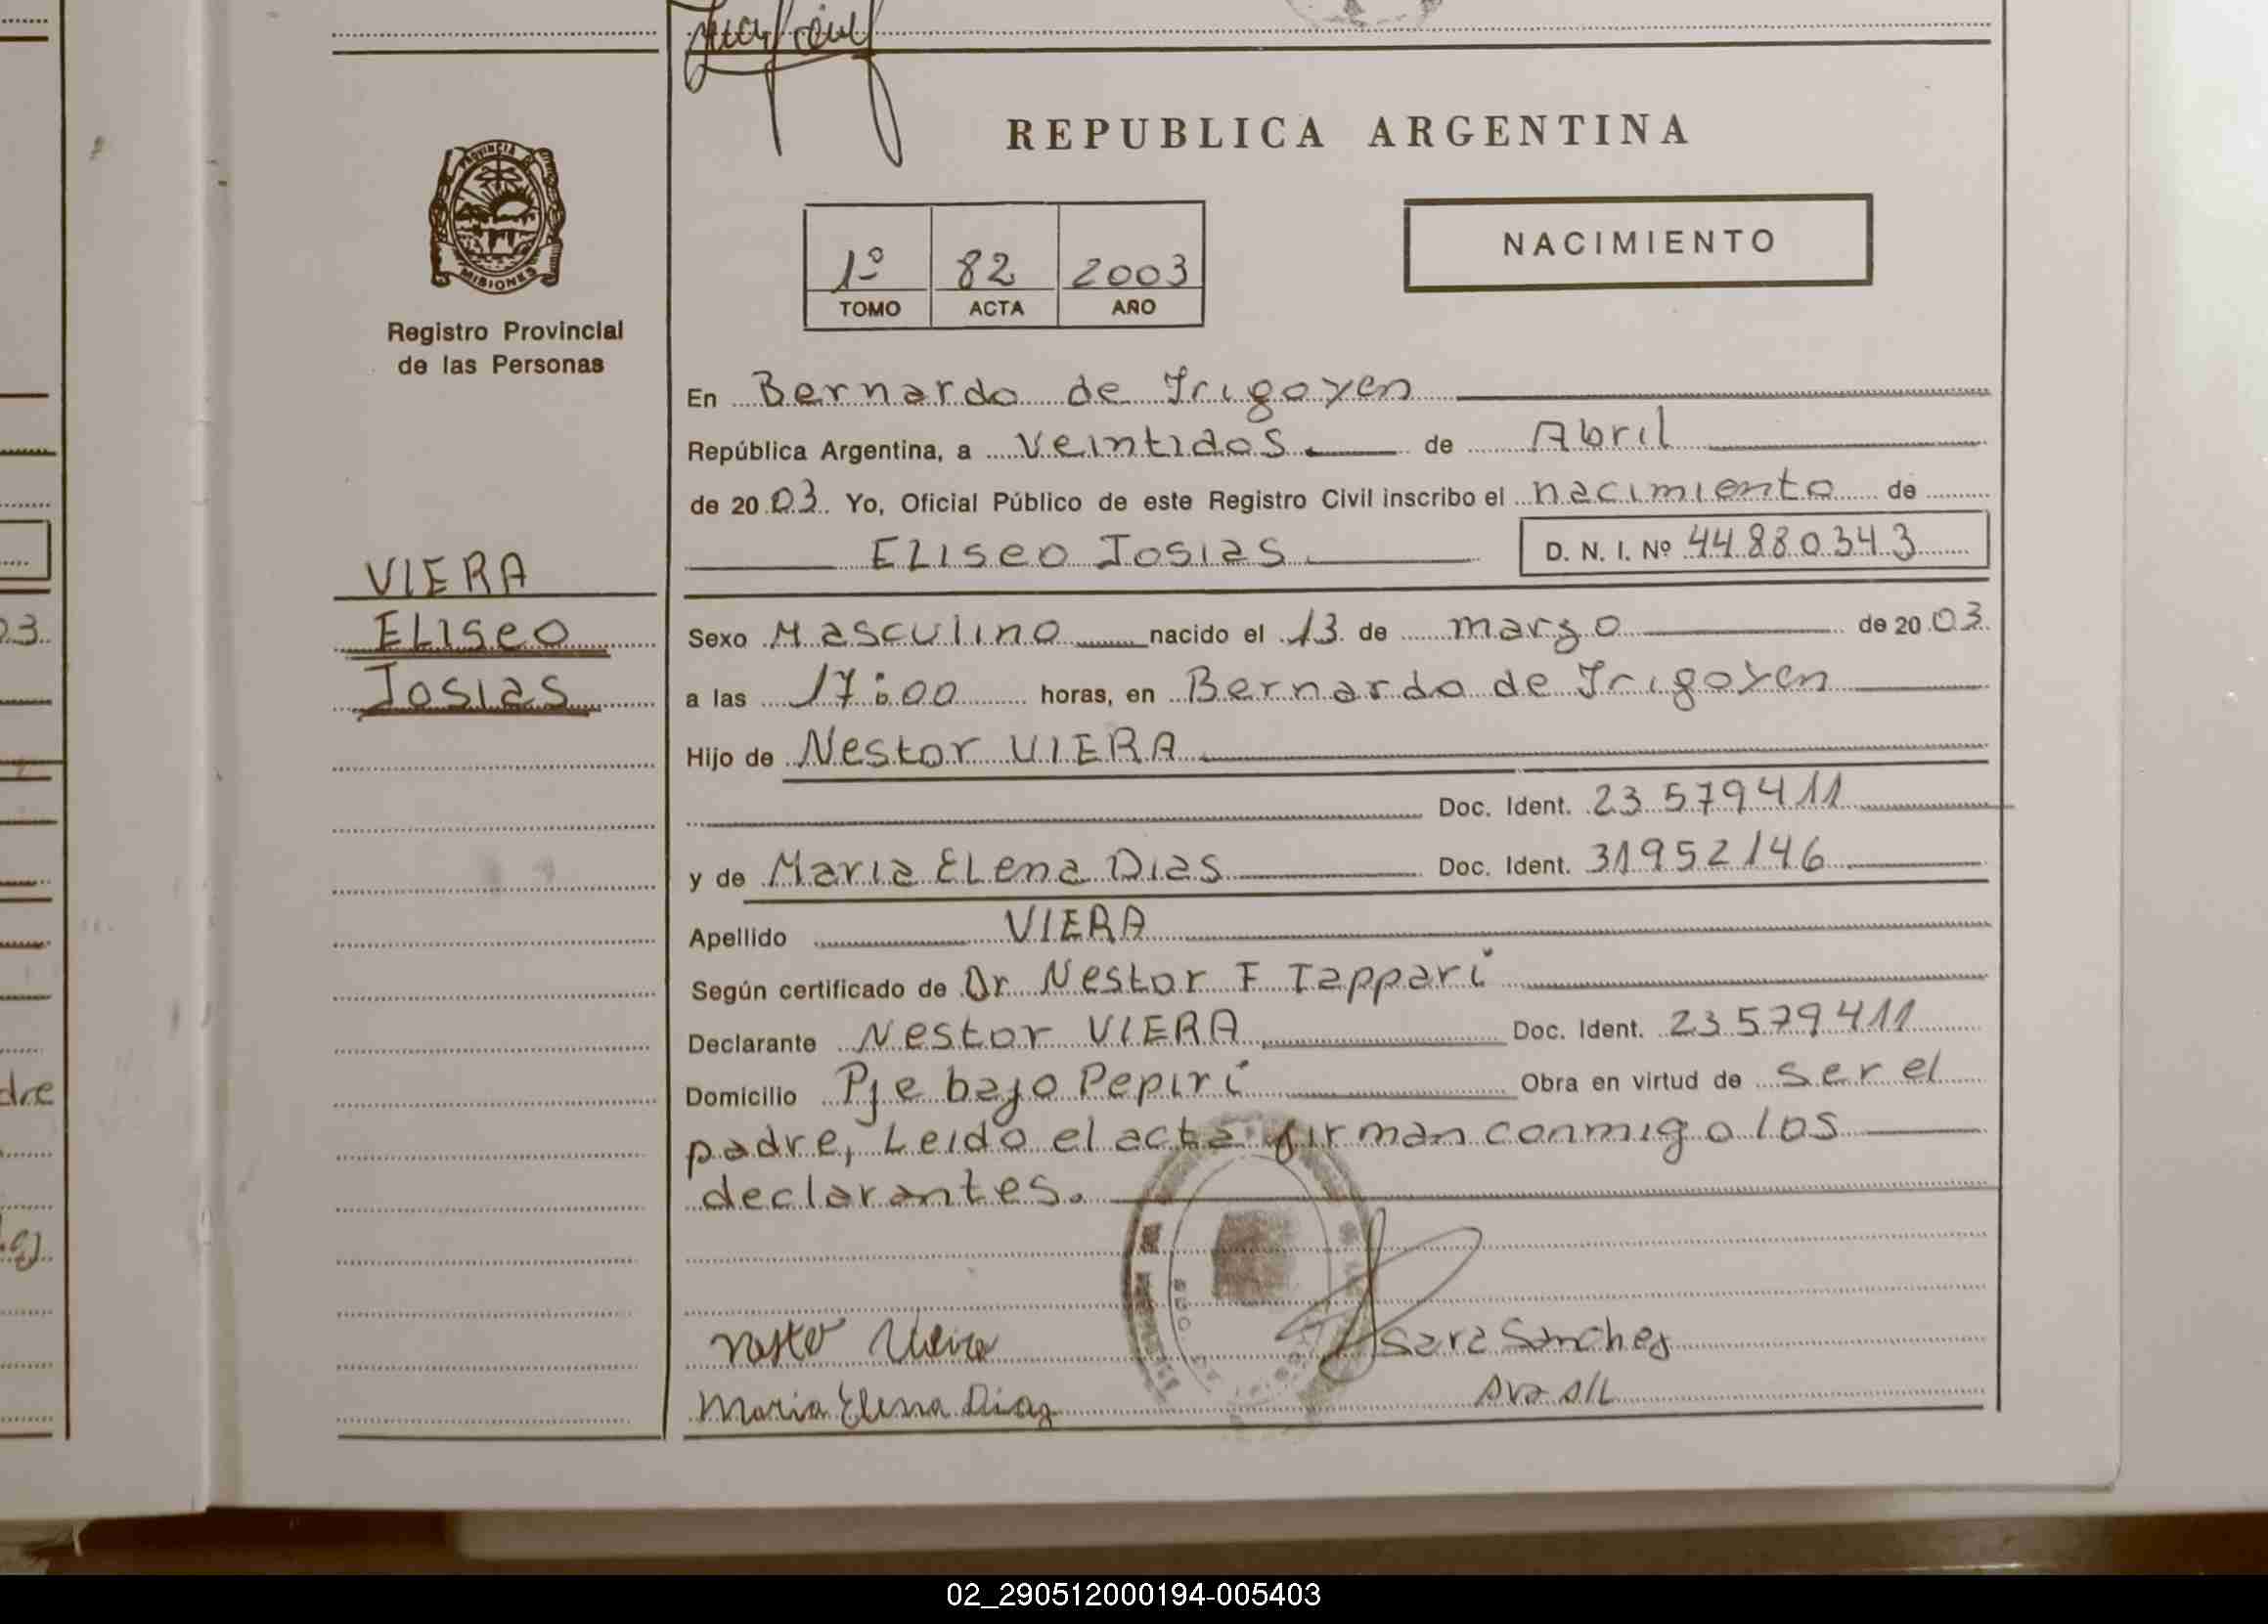 REPUBLICA ARGENTINA
PROVINCIA DE
MISIONES
Registro Provincial
de las Personas
1º 82 2003
TOMO ACTA AÑO
NACIMIENTO
En Bernardo de Irigoyen
República Argentina, a veintidos de Abril
de 2003 Yo, Oficial Público de este Registro Civil inscribo el nacimiento de
Eliseo Josias D. N. I. Nº 44880343
VIERA
Eliseo
Josias
Sexo Masculino nacido el 13 de marzo de 2003
a las 17:00 horas, en Bernardo de Irigoyen
Hijo de Nestor VIERA
Doc. Ident. 23579411
y de Maria Elena Dias Doc. Ident. 31952146
Apellido VIERA
Según certificado de Dr Nestor F Tappari
Declarante Nestor VIERA Doc. Ident. 23579411
Domicilio Pje bajo Pepiri Obra en virtud de ser el
padre, Leido el acta firman conmigo los
declarantes.
Sara Sanchez
Maria Elena Diaz
02_290512000194-005403